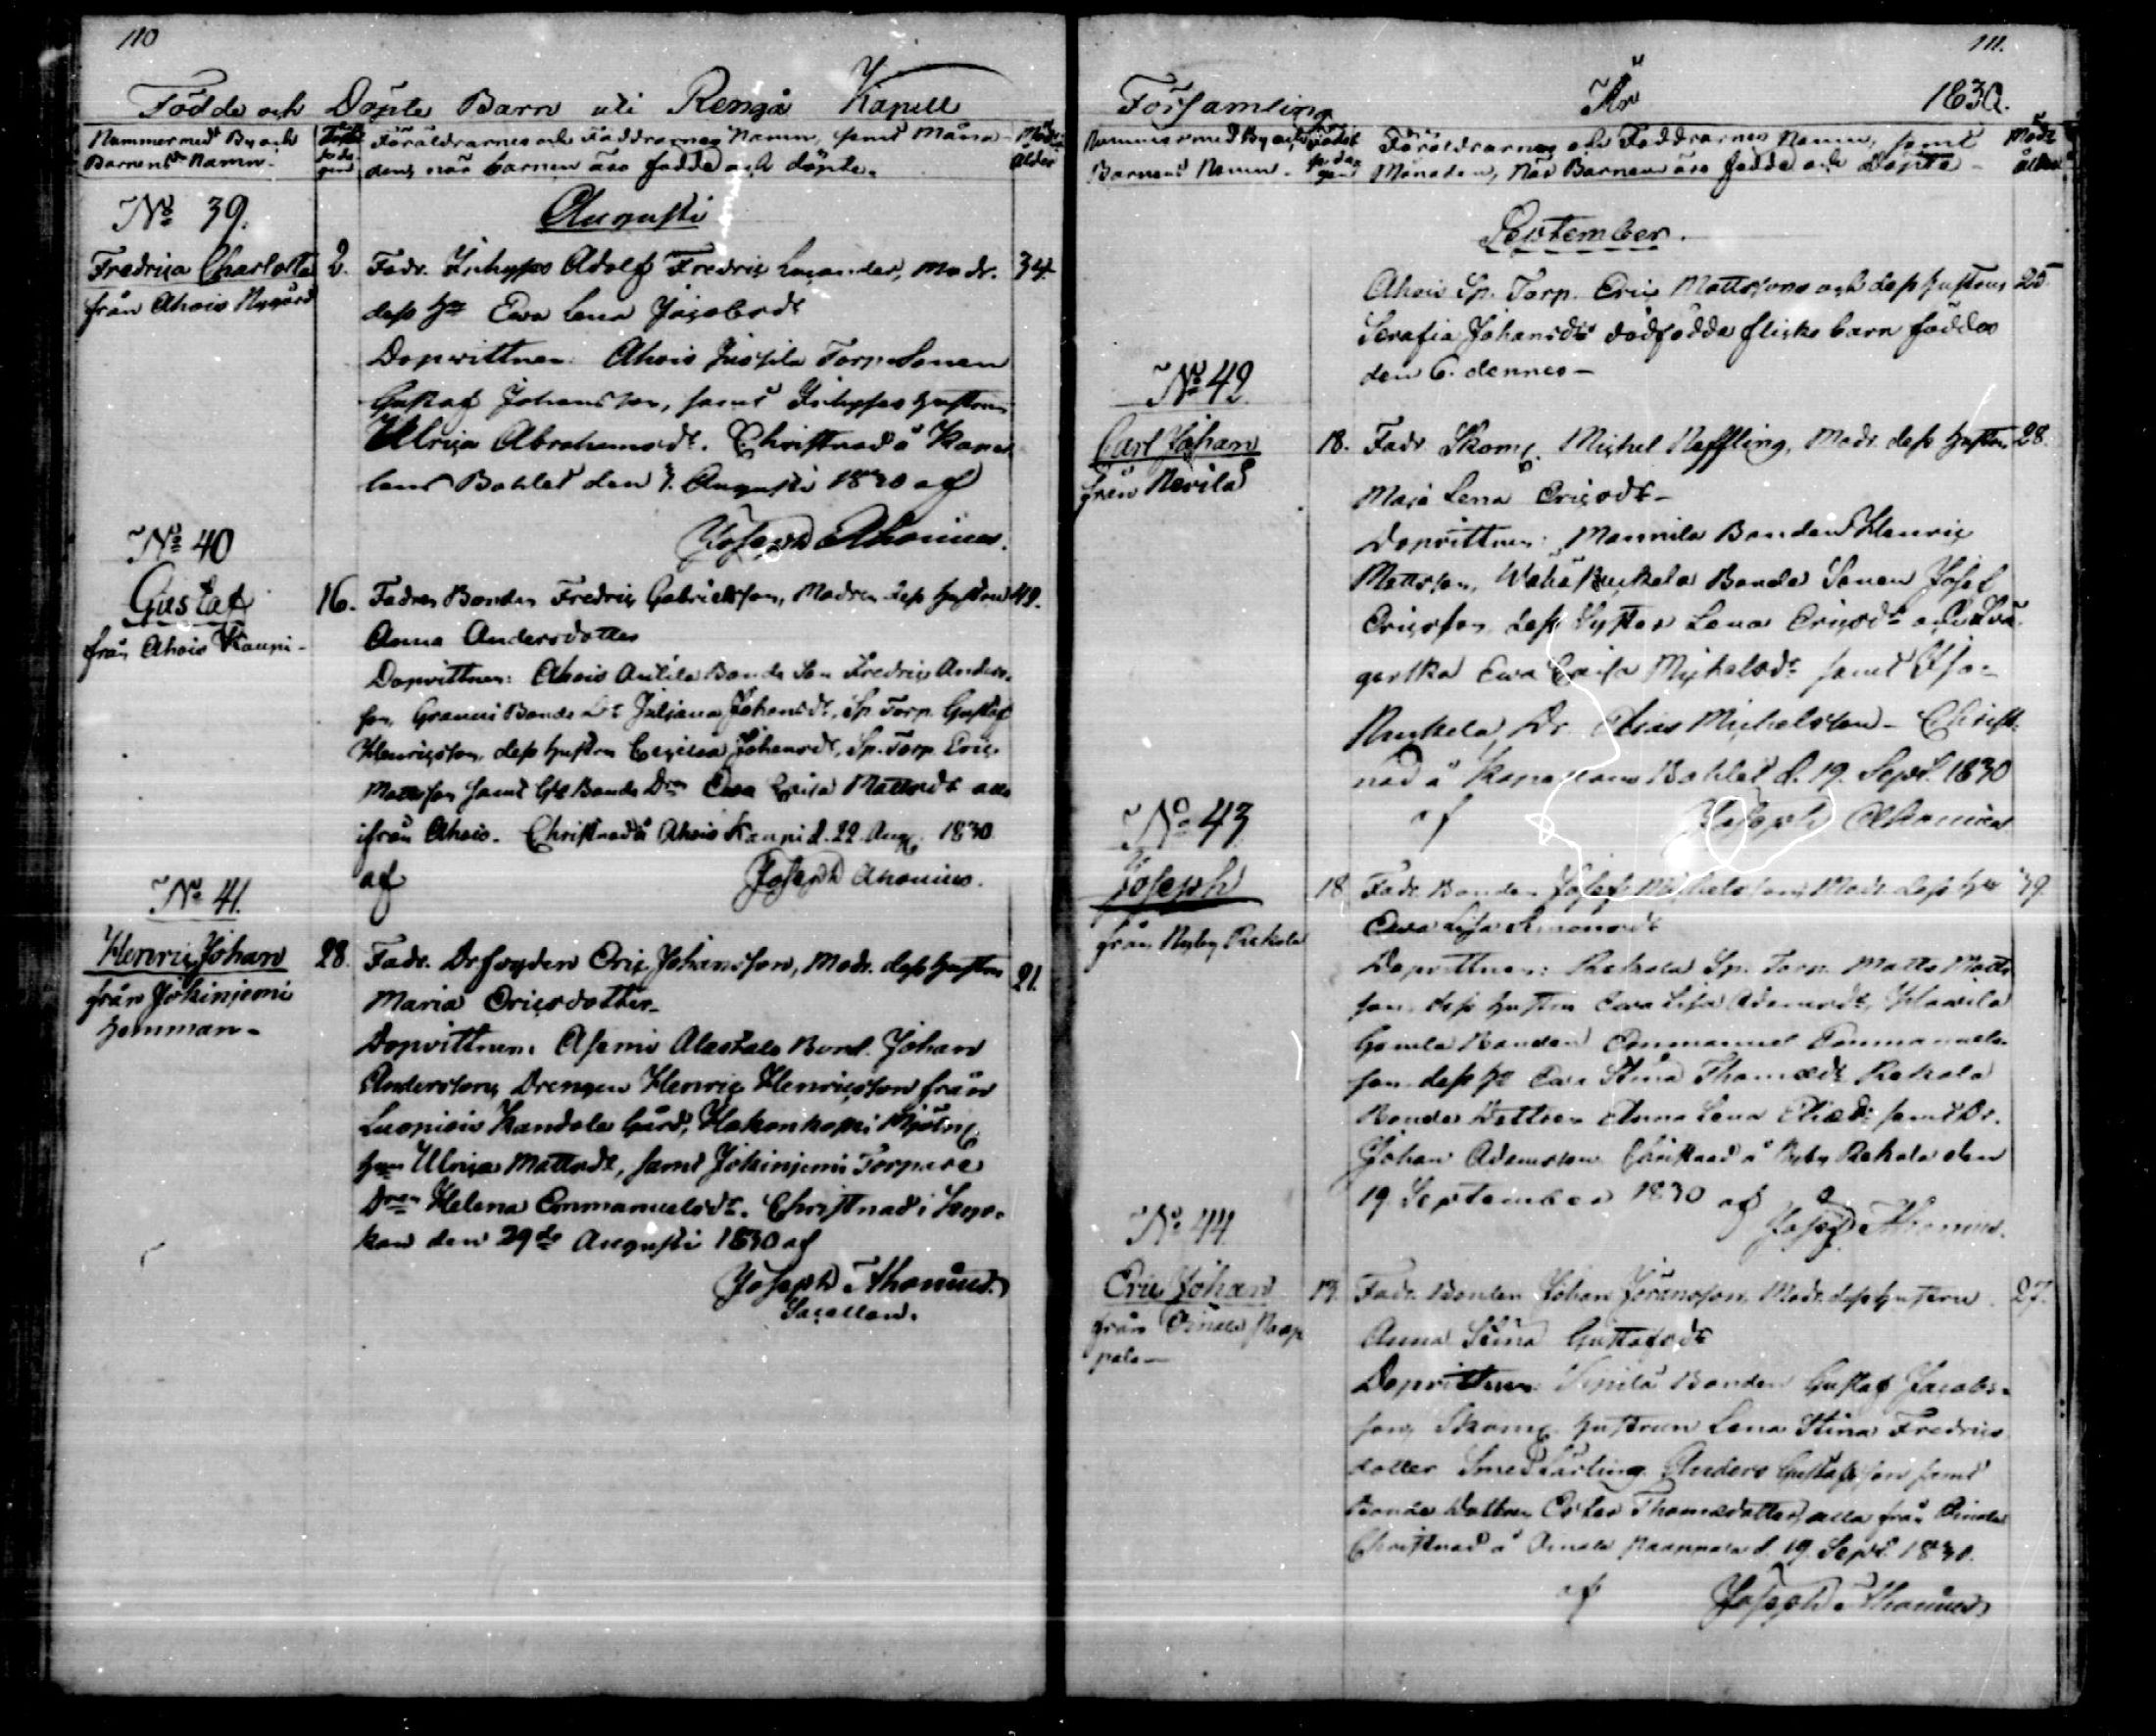 110
Födde och Döpte Barn uti Rengå Kapell
Nummer med By och
Barnens Namn.
Föräldrarnes och Faddrarnes Namn, samt Måna-
den, när barnen äro födde och döpte.
Modr
ålder
Augusti
No 39.
Fredrica Charlotta
från Ahois Nygård
2.
Fadr. Inhyses Adolf Fredric Lucander, Modr.
34.
dess Hu Ewa Lena Jacobsdt
Dopvittnen: Ahois Jussila Torp. Sonen
Gustaf Johansson, samt Inhyses hustrun
Ulrica Abrahamsdt. Christnad å Kapel
lans Bohlet den 7. Augusti 1830 af
Joseph Ahonius.
No 40
Gustaf
från Ahois Kaupi-
16.
Fadren Bonden Fredric Gabrielsson, Modren dess hustru
49.
Anna Andersdotter
Dopvittnen: Ahois Anttila Bonde Son Fredric Anders-
son, Granni Bonde Dt Juliana Johansdt, Sp. Torp. Gustaf
Henricsson, dess hustru Cecilia Johansdt, Sp. Torp. Eric
Mattsson samt Bonde Drn Ewa Caisa Mattsdt alla
ifrån Ahois. Christnad å Ahois Kaupi d. 22. Aug. 1830
af
Joseph Ahonius.
No 41.
Henric Johan
från Jokiniemi
Hemman-
28.
Fadr. Drfogden Eric Johansson, Modr. dess hustru
21.
Maria Ericsdotter-
Dopvittnen: Asemi Alastalo Bond. Johan
Andersson, Drengen Henric Henricsson från
Luopiois Kandola Gård, Hakonkoski Mjöln.
Hun Ulrica Mattsdt, samt Jokiniemi Torpare
Dren Helena Emmanuelsdt. Christnad i Kyr-
kan den 29de Augusti 1830 af
Joseph Ahonius.
Sacellan.
111.
Församling
År
1830.
Nummer med By och
Barnens Namn.
Föräldrarnes och Faddrarnes Namn, samt
Månaden, när Barnen äro födde och Döpte-
Modr
ålder
September.
Ahois Sp. Torp. Eric Mattssons och dess hustrus
25
Serafia Johansdts dödfödda flicko barn föddes
den 6. dennes-
No 42.
Carl Johan
från Nevilä
18.
Fadr Skom. Michel Neffling, Modr. dess hustru
28.
Maja Lena Ericsdt-
Dopvittnen: Mannila Bonden Henric
Mattsson, Wähä Runkala Bonde Sonen Josef
Ericsson, dess Syster Lena Ericsdt och Svä-
gerska Ewa Caisa Michelsdt samt Iso-
Runkala Dr. Elias Michelsson- Christ-
nad å Kapellans Bohlet d. 19. Sept. 1830
af
Joseph Ahonius
No 43
Joseph
från Nyby Rekola
18
Fadr. Bonden Josef Michelsson, Modr. dess Hu
39.
Ewa Lisa Simonsdt
Dopvittnen: Rekola Sp. Torp. Matts Matts
son, dess hustru Ewa Lisa Adamsdt,
Gamla Bonden Emmanuel Emmanuels-
son, dess Hu Ewa Stina Thomasdt Rekola
Bonde Dottren Anna Lena Eliaedt samt Dr.
Johan Adamsson Christnad å Nyby Rekola den
19. September 1830 af
Joseph Ahonius.
No 44
Eric Johan
från Oinala Naap
pala-
13.
Fadr. Bonden Johan Jöransson, Modr. dess hustru
27.
Anna Stina Gustafsdt
Dopvittnen: Bonden Gustaf Jacobs-
son, Skom. hustrun Lena Stina Fredrics
dotter Smed Lärling Anders Gustafsson samt
Bonde Dottren Ester Thomasdotter, alla från Oinala
Christnad å Oinala Naappala d. 19. Sept. 1830.
af
Joseph Ahonius